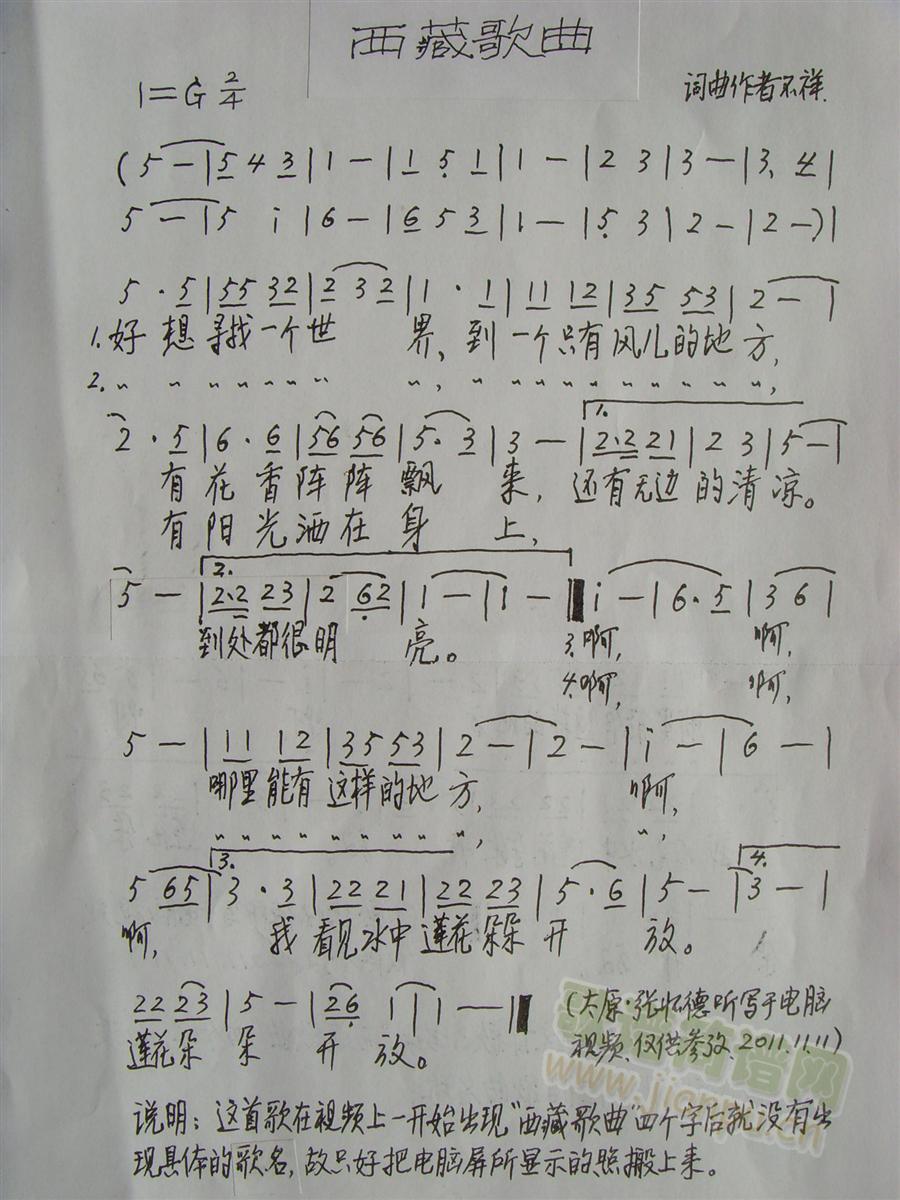 西藏歌曲
1=G 2/4
词曲作者不祥.
(5 — | 5 4 3 | 1 — | 1 5 1 | 1 — | 2 3 | 3 — | 3. 4 |
5 — | 5 i | 6 — | 6 5 3 | 1 — | 5 3 | 2 — | 2 —) |
5 · 5 | 55 32 | 2 3 2 | 1 · 1 | 11 12 | 35 53 | 2 — |
1.好想寻找一个世界,到一个只有风儿的地方,
2. 〃 〃 〃 〃 〃 〃 〃 〃, 〃 〃 〃 〃 〃 〃 〃 〃 〃 〃 〃,
2 · 5 | 6 · 6 | 56 56 | 5. 3 | 3 — | 1. 2·2 21 | 2 3 | 5 — |
有花香阵阵飘来,还有无边的清凉。
有阳光洒在身上,
5 — | 2. 2·2 23 | 2 62 | 1 — | 1 — | i — | 6·5 | 3 6 |
到处都很明亮。 3.啊, 啊,
4.啊, 啊,
5 — | 11 12 | 35 53 | 2 — | 2 — | i — | 6 — |
哪里能有这样的地方, 啊,
〃 〃 〃 〃 〃 〃 〃 〃 〃, 〃,
5 65 | 3. 3 · 3 | 22 21 | 22 23 | 5 · 6 | 5 — | 4. 3 — |
啊, 我看见水中莲花朵朵开放。
22 23 | 5 — | 26 1 | 1 — ‖
莲花朵朵开放。
(太原·张怀德听写于电脑
视频、仅供参考、2011.11.11)
说明:这首歌在视频上一开始出现"西藏歌曲"四个字后就没有出
现具体的歌名,故只好把电脑屏所显示的照搬上来。